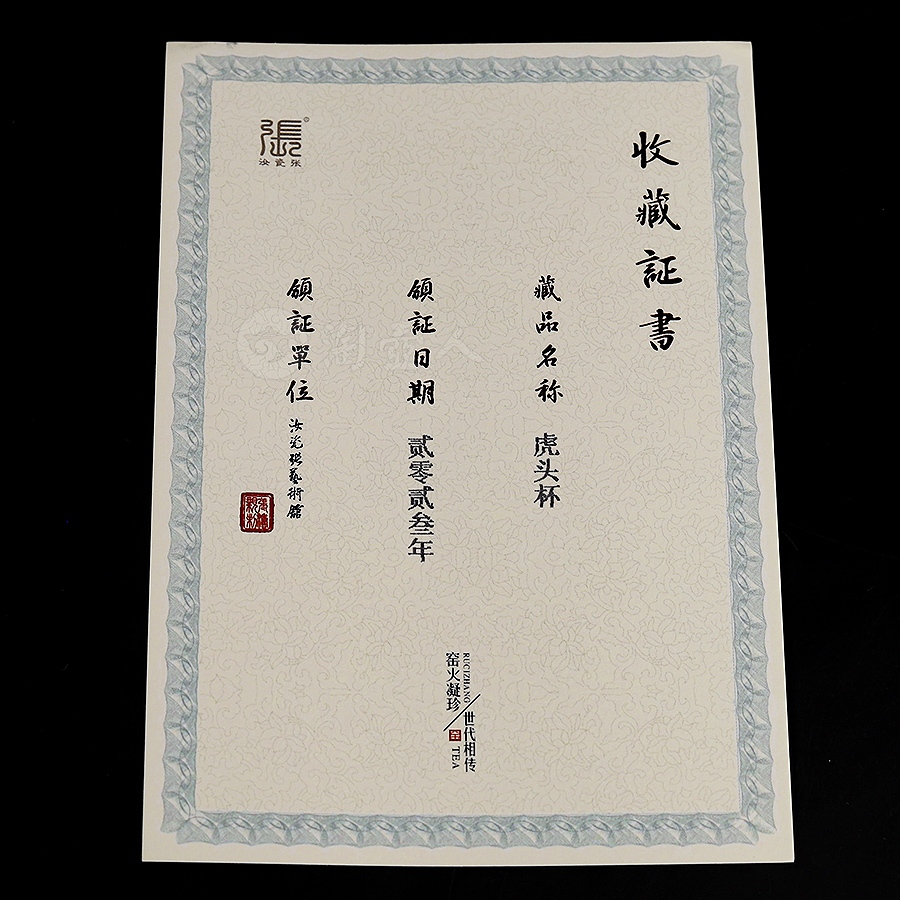 收藏証書
藏品名称 虎头杯
領証日期 贰零贰叁年
領証單位 汝瓷張藝術館
張
汝瓷张
RUCIZHANG
窑火凝珍
世代相传
TEA